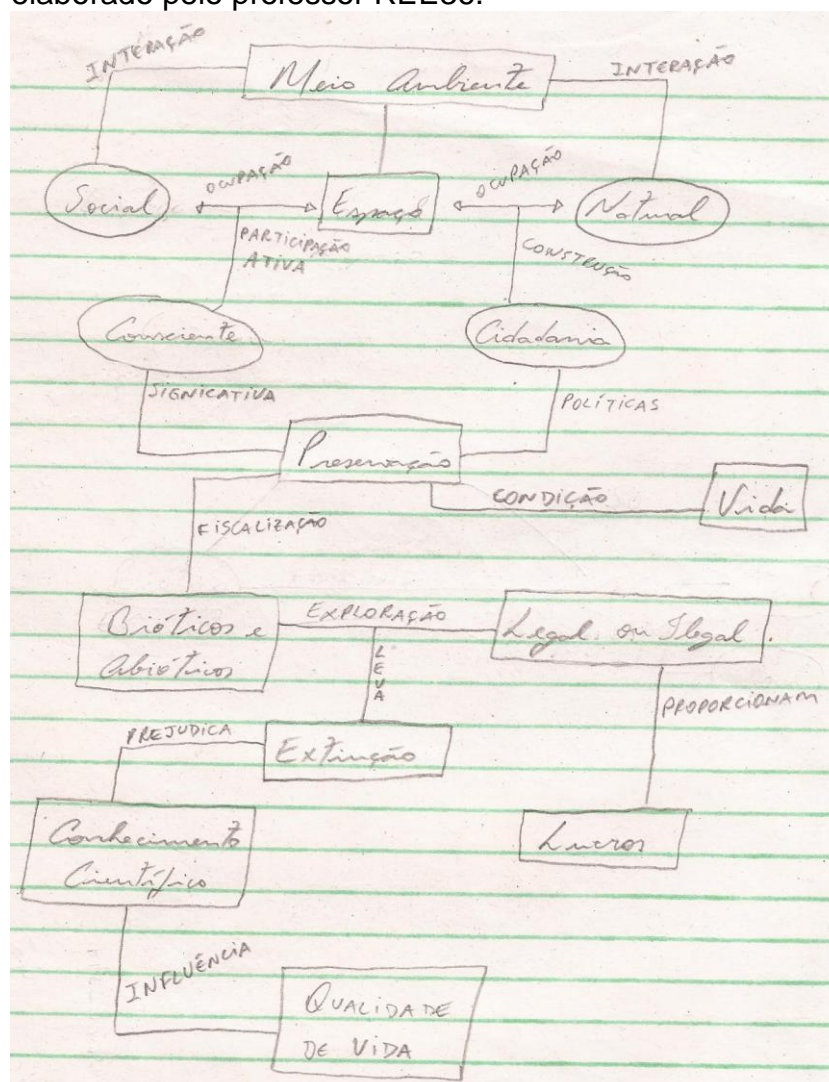 elaborado pelo professor REE38.
INTERAÇÃO
Meio Ambiente
INTERAÇÃO
Social
OCUPAÇÃO
Espaço
OCUPAÇÃO
Natural
PARTICIPAÇÃO
ATIVA
CONSTRUÇÃO
Consciente
Cidadania
SIGNICATIVA
POLÍTICAS
Preservação
CONDIÇÃO
Vida
FISCALIZAÇÃO
Bióticos e
Abióticos
EXPLORAÇÃO
Legal ou Ilegal.
LEVA
PROPORCIONAM
PREJUDICA
Extinção
Conhecimento
Científico
Lucros
INFLUÊNCIA
QUALIDADE
DE VIDA